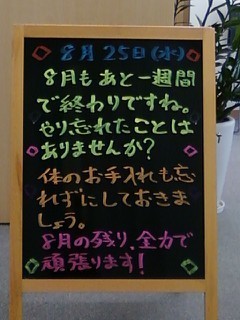 8月25日(水)
8月もあと一週間
で終わりですね。
やり忘れたことは
ありませんか?
体のお手入れも忘
れずにしておきま
しょう。
8月の残り、全力で
頑張ります!